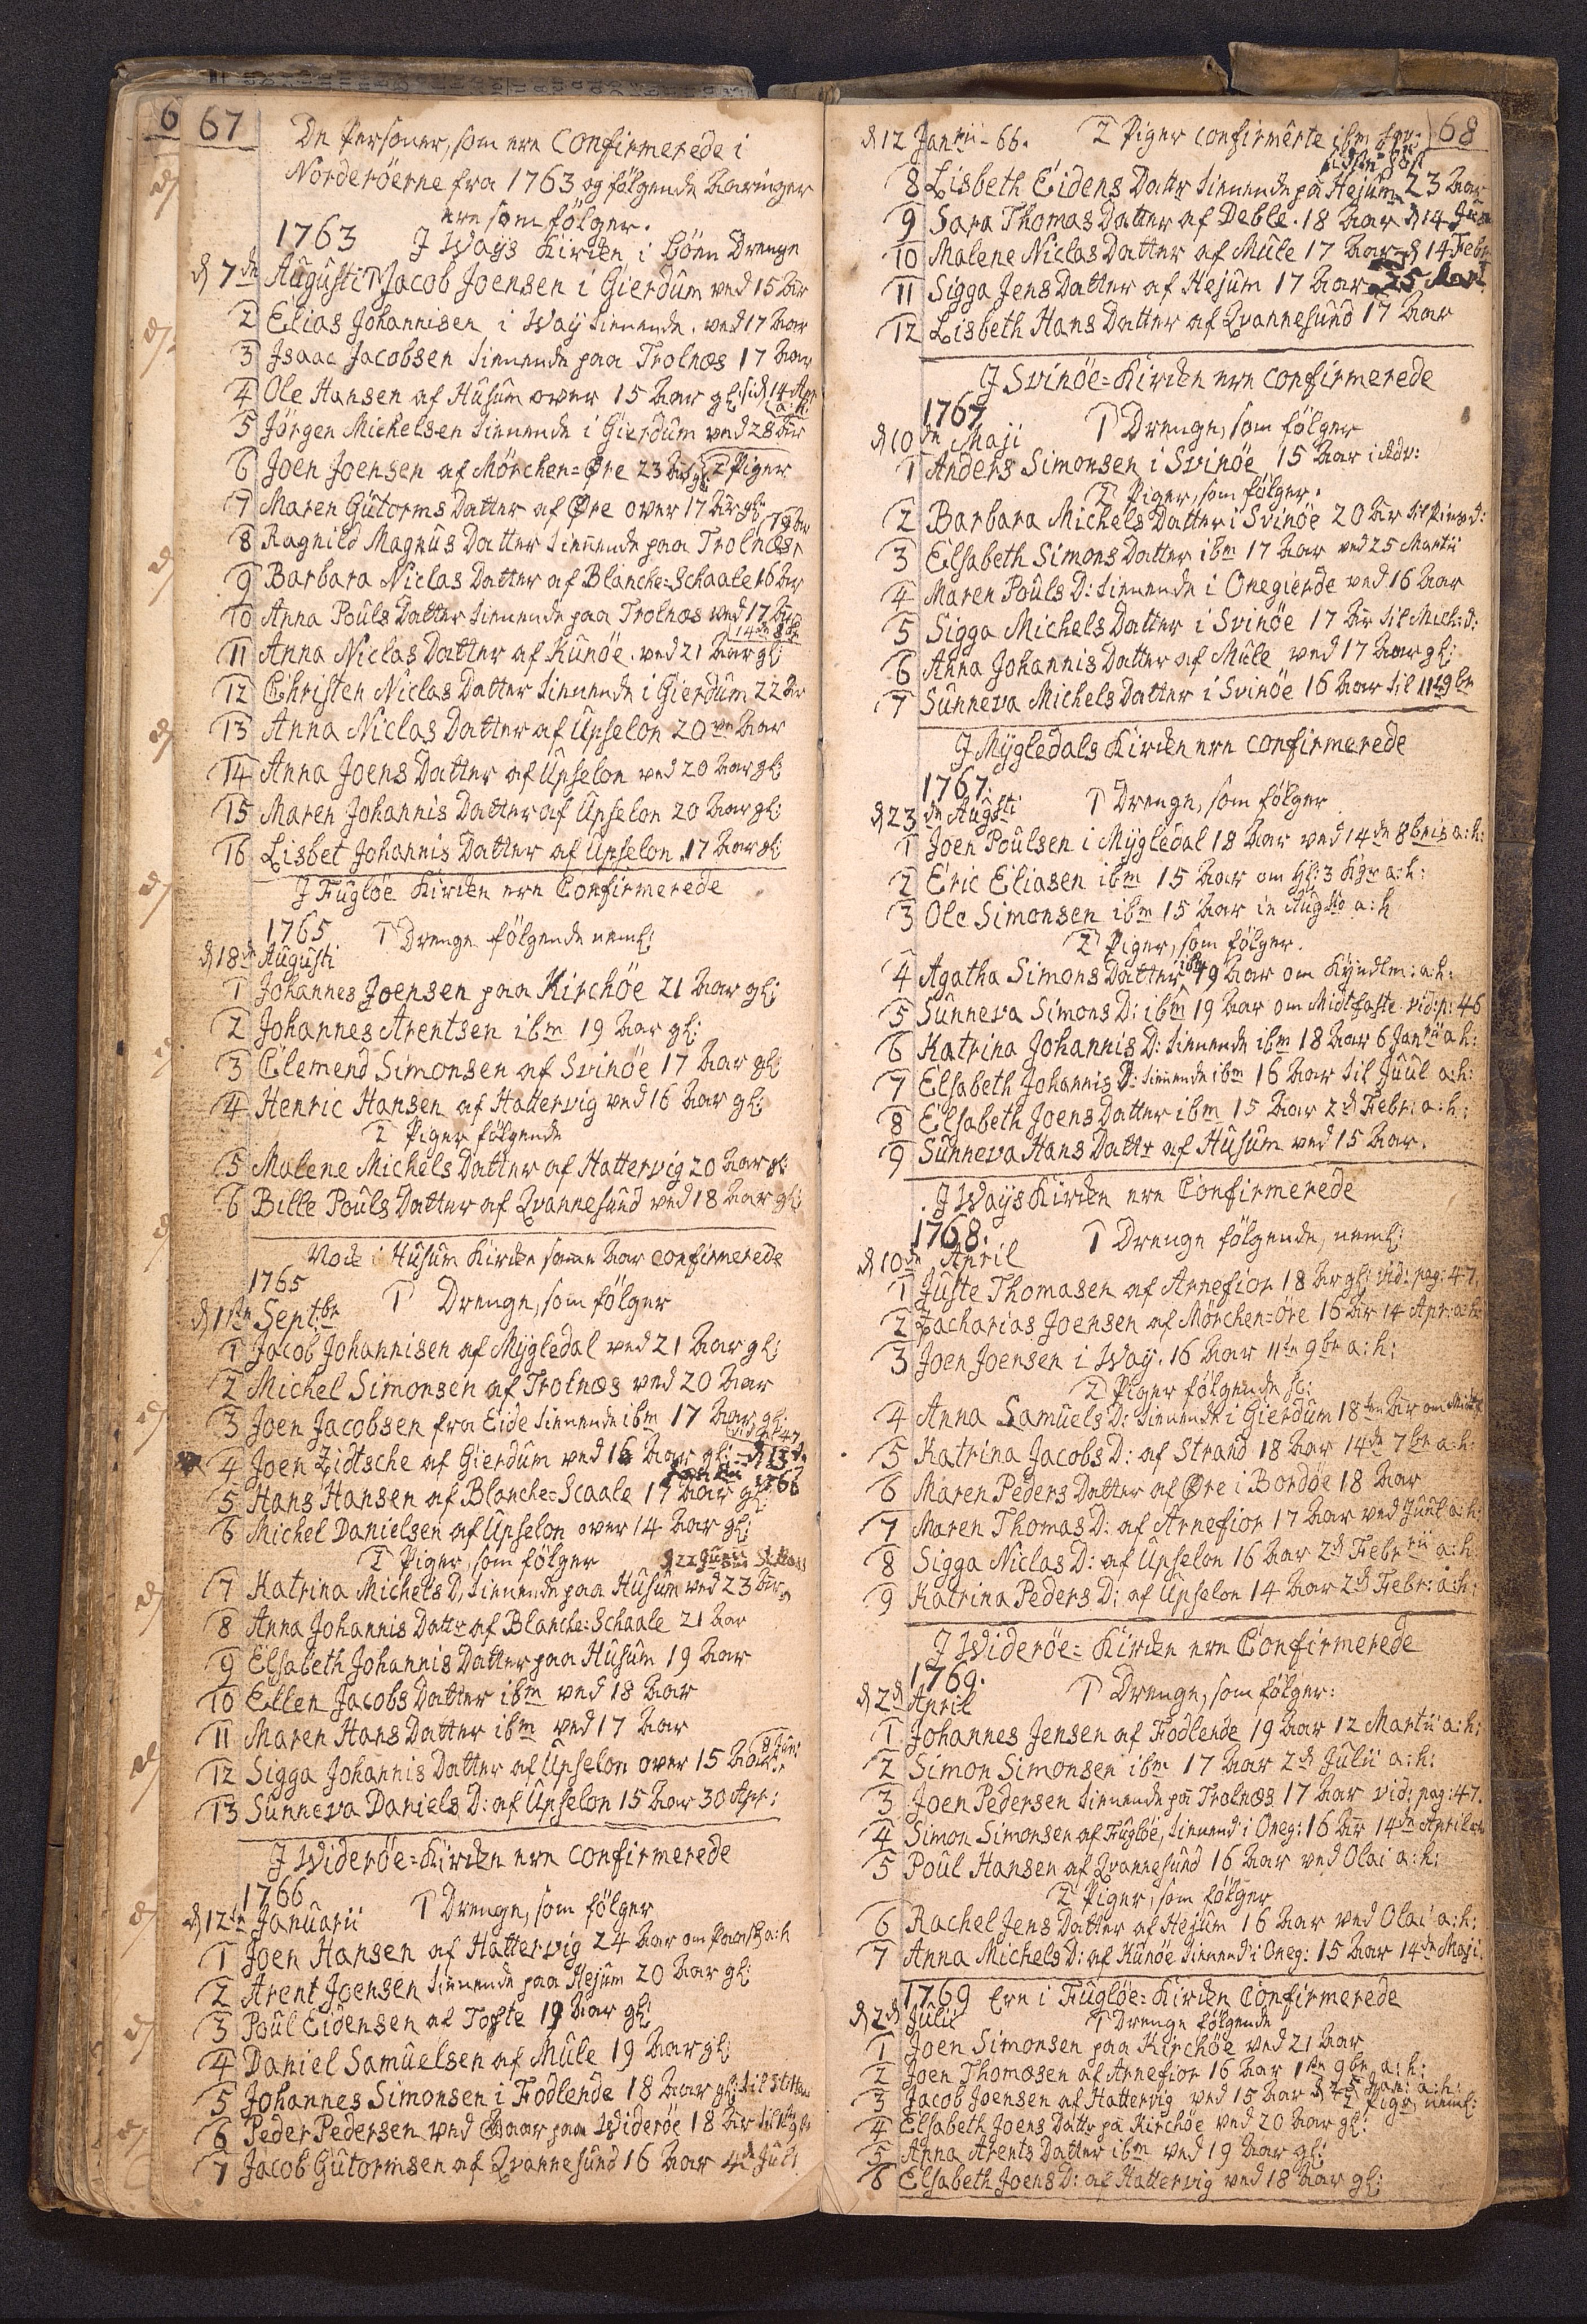 67
De Personer, som ere Confirmerede i
Norderöerne fra 1763 og fölgende Aaringer
ere som fölger.
1763 J Ways Kircke
Drenge
d 7de Augusti 1 Jacob Joensen i Gierdum ved 15 Aar
2 Elias Johannisen i Way tienende. ved 17 Aar
3 Jsaac Jacobsen tienende paa Trolnæs 17 Aar
4 Ole Hansen af Husum over 15 Aar gl: 14 Apr
a: h:
5 Jörgen Michelsen tienende i Gierdum ved 28 Aar
6 Joen Joensen af Mörchen=Øre 23 Aar gl: 2 Piger
7 Maren Gutorms Datter af Øre over 17 Aar gl:
8 Ragnild Magnus Datter tienende paa Trolnæs 18 Aar
9 Barbara Niclas Datter af Blanche=Schaale 16 Aar
10 Anna Pouls Datter tienende paa Trolnæs ved 17 Aar
14de 8br
11 Anna Niclas Datter af Kunöe. ved 21 Aar gl:
12 Christen Niclas Datter tienende i Gierdum 22 Aar
13 Anna Niclas Datter af Upselon 20ve Aar
14 Anna Joens Datter af Upselon ved 20 Aar gl:
15 Maren Johannis Datter af Upselon 20 Aar gl:
16 Lisbet Johannis Datter af Upselon 17 Aar gl:
J Fuglöe Kircke ere Confirmerede
1765 1 Drenge fölgende neml:
d 18de Augusti
1 Johannes Joensen paa Kirchöe 21 Aar gl:
2 Johannes Arentsen ibm 19 Aar gl:
3 Clemend Simonsen af Svinöe 17 Aar gl:
4 Henric Hansen af Hattervig ved 16 Aar gl:
2 Piger fölgende
5 Malene Michels Datter af Hattervig 20 Aar gl:
6 Bille Pouls Datter af Qvannesund ved 18 Aar gl:
Nock i Husum Kircke samme Aar confirmerede
1765
1 Drenge, som fölger
d 1ste Septbr
1 Jacob Johannisen af Mygledal ved 21 Aar gl:
2 Michel Simonsen af Trolnæs ved 20 Aar
3 Joen Jacobsen fra Eide tienende ibm 17 Aar gl:
vid: p: 47
4 Joen Zidtsche af Gierdum ved 16 Aar gl: d 13de
1766
5 Hans Hansen af Blanche=Scaale 17 Aar gl:
6 Michel Danielsen af Upselon over 14 Aar gl:
2 Piger, som fölger d 22 Junii
7 Katrina Michels D: tienende paa Husum ved 23 Aar
8 Anna Johannis Dattr af Blanche=Schaale 21 Aar
9 Elsabeth Johannis Datter paa Husum 19 Aar
10 Ellen Jacobs Datter ibm ved 18 Aar
11 Maren Hans Datter ibm ved 17 Aar
12 Sigga Johannis Datter af Upselon over 15 Aar
13 Sunneva Daniels D: af Upselon 15 Aar 30 Apr:
J Wideröe=Kircke ere confirmerede
1766 1 Drenge, som fölger
d 12te Januarii
1 Joen Hansen af Hattervig 24 Aar om Paasch a:h
2 Arent Joensen tienende paa Hejum 20 Aar gl:
3 Poul Eidensen af Tofte 19 Aar gl:
4 Daniel Samuelsen af Mule 19 Aar gl:
5 Johannes Simonsen i Fodlende 18 Aar gl:
6 Peder Pedersen ved Aaar paa Wideröe 18 Aar
7 Jacob Gutormsen af Qvannesund 16 Aar 4de Juli
68
d 12 Janrii - 66. 2 Piger confirmerte ibm
8 Lisbeth Eidens Dattr tienende pa Hejum 23 Aar
9 Sara Thomas Datter af Deble. 18 Aar d 14 Jun
10 Malene Niclas Datter af Mule 17 Aar d 14 Febr
11 Sigga Jens Datter af Hejum 17 Aar 25 Mart
12 Lisbeth Hans Datter af Qvannesund 17 Aar
J Svinöe=Kircke ere confirmerede
1767
1 Drenge, som fölger
d 10de Maji
1 Anders Simonsen i Svinöe 15 Aar i Adv:
2 Piger, som fölger.
2 Barbara Michels Datter i Svinöe 20 Aar til Pintzd:
3 Elsabeth Simons Datter ibm 17 Aar ved 25 Martii
4 Maren Pouls D: tienende i Onegierde ved 16 Aar
5 Sigga Michels Datter i Svinöe 17 Aar til Mich:d:
6 Anna Johannis Datter af Mule ved 17 Aar gl:
7 Sunneva Michels Datter i Svinöe 16 Aar til 11te 9br
J Mygledals Kircke ere confirmerede
1767.
1 Drenge, som fölger
d 23de Augsti
1 Joen Poulsen i Mygledal 18 Aar ved 14de 8bris a:h:
2 Eric Eliasen ibm 15 Aar om hl: 3 Kgr a:h:
3 Ole Simonsen ibm 15 Aar in Augsto a:h
2 Piger, som fölger.
4 Agatha Simons Datter ibm 19 Aar om Kyndlm: a:h:
5 Sunneva Simons D: ibm 19 Aar om Midtfaste vid:p: 46
6 Katrina Johannis D: tienende ibm 18 Aar 6 Janrii a:h:
7 Elsabeth Johannis D: tienende ibm 16 Aar til Juul a:h:
8 Elsabeth Joens Datter ibm 15 Aar 2d Febr: a:h:
9 Sunneva Hans Dattr af Husum ved 15 Aar.
J Ways Kircke ere Confirmerede
1768.
1 Drenge fölgende, neml:
d 10de April
1 Juste Thomasen af Arnefior 18 Aar gl: vid: pag: 47.
2 Zacharias Joensen af Mörchen=öre 16 Aar 14 Apr: a:h:
3 Joen Joensen i Way. 16 Aar 11te 9br a:h:
2 Piger fölgende
4 Anna Samuels D: tienende i Gierdum 18ten Aar om
5 Katrina Jacobs D: af Strand 18 Aar 14de 7br a:h:
6 Maren Peders Datter af Øre i Bordöe 18 Aar
7 Maren Thomas D: af Arnefior 17 Aar ved Juul a:h:
8 Sigga Niclas D: af Upselon 16 Aar 2d Febrrii a:h
9 Katrina Peders D: af Upselon 14 Aar 2d Febr: a:h:
J Wideröe=Kircke ere Confirmerede
1769.
1 Drenge, som fölger:
d 2d April
1 Johannes Jensen af Fodlende 19 Aar 12 Martii a:h:
2 Simon Simonsen ibm 17 Aar 2d Julii a:h:
3 Joen Pedersen tienende på Trolnæs 17 Aar vid: pag: 47.
4 Simon Simonsen af Fuglöe, tienend i Oneg: 16 Aar 14de April
5 Poul Hansen af Qvannesund 16 Aar ved Olai a:h:
2 Piger, som fölger
6 Rachel Jens Datter af Hejum 16 Aar ved Olai a:h:
7 Anna Michels D: af Kunöe tienend i Oneg: 15 Aar 14de Maji.
1769 Ere i Fuglöe=Kircke Confirmerede
d 2d Julii
1 Drenge fölgende
1 Joen Simonsen paa Kirchöe ved 21 Aar
2 Joen Thomasen af Arnefior 16 Aar 1ste 9br a:h:
3 Jacob Joensen af Hattervig ved 15 Aar d 2d Jan: a:h:
2 Piger neml:
4 Elsabeth Joens Dattr pa Kirchöe ved 20 Aar gl:
5 Anna Arents Datter ibm ved 19 Aar gl:
6 Elsabeth Joens D: af Hattervig ved 18 Aar gl: